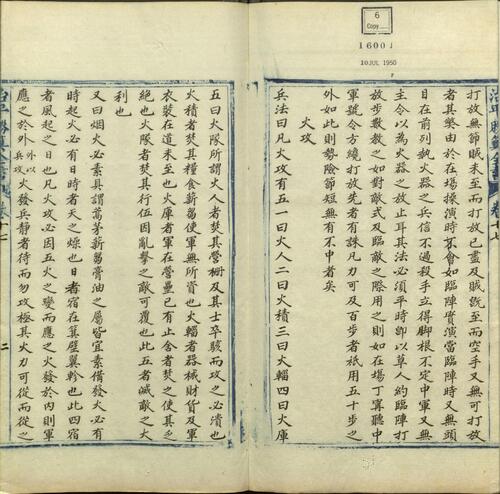 6
Copy
1600
10 JUL 1950
打放無節賊未至而打放已盡及賊既至而空手又無可打放
者其獘由於在場操演時不會如臨陣實演當臨陣時又無頭
目在前列執火器之兵信不過殺手立得脚根不定中軍又無
主令以為火器之放止耳其法必須平時卽以草人約臨陣打
放步數教之如對敵式及臨敵之際用之則如在場丁寧聽中
軍號令方繞打放先者有誅凡力可及百步者祇用五十步之
外如此則勢險節短無有不中者矣
火攻
兵法曰凡火攻有五一曰火人二曰火積三曰火輜四曰火庫
五曰火隊所謂火人者焚其營柵及其士卒駭而攻之必潰也
火積者焚其糧食薪芻使軍無所資也火輜者器械財貨及軍
衣裝在道未至也火庫者軍在營壘已有止舍者焚之使其乏
絕也火隊者焚其行伍因亂擊之敵可覆也此五者滅敵之大
利也
又曰烟火必素具謂蒿茅薪芻膏油之屬皆宜素備發火必有
時起火必有日時者天之燥也日者宿在箕壁翼軫也此四宿
者風起之日也凡火攻必因五火之變而應之火發於内則軍
應之於外外以兵攻火發兵靜者待而勿攻極其火力可從而從之
二